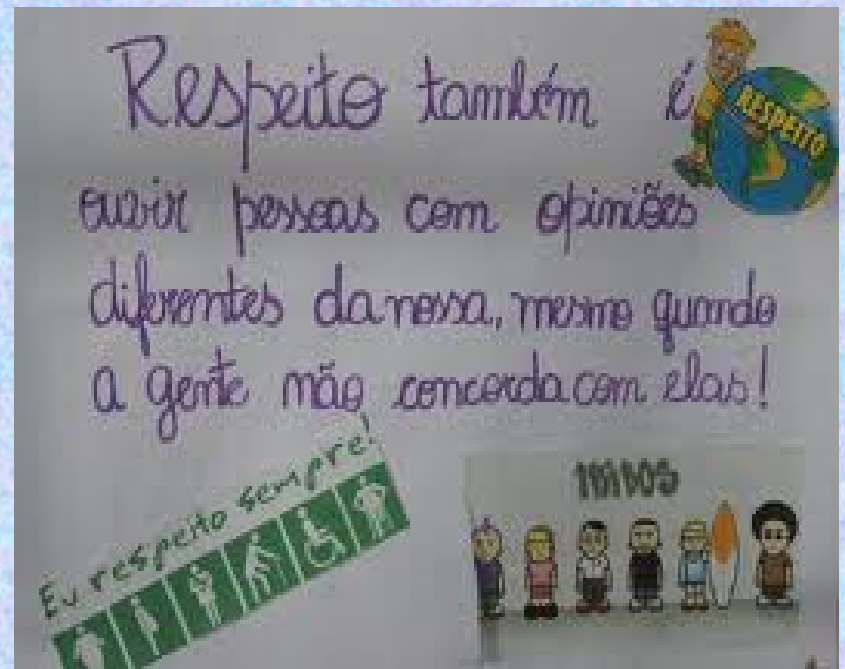 Respeito também é
RESPEITO
ouvir pessoas com opiniões
diferentes da nossa, mesmo quando
a gente não concorda com elas!
Eu respeito sempre!